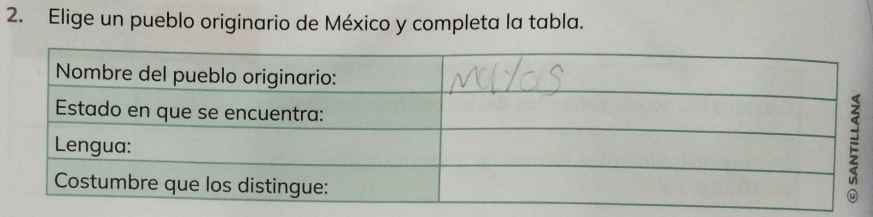 2. Elige un pueblo originario de México y completa la tabla.
Nombre del pueblo originario: mayas
Estado en que se encuentra:
Lengua:
Costumbre que los distingue:
© SANTILLANA